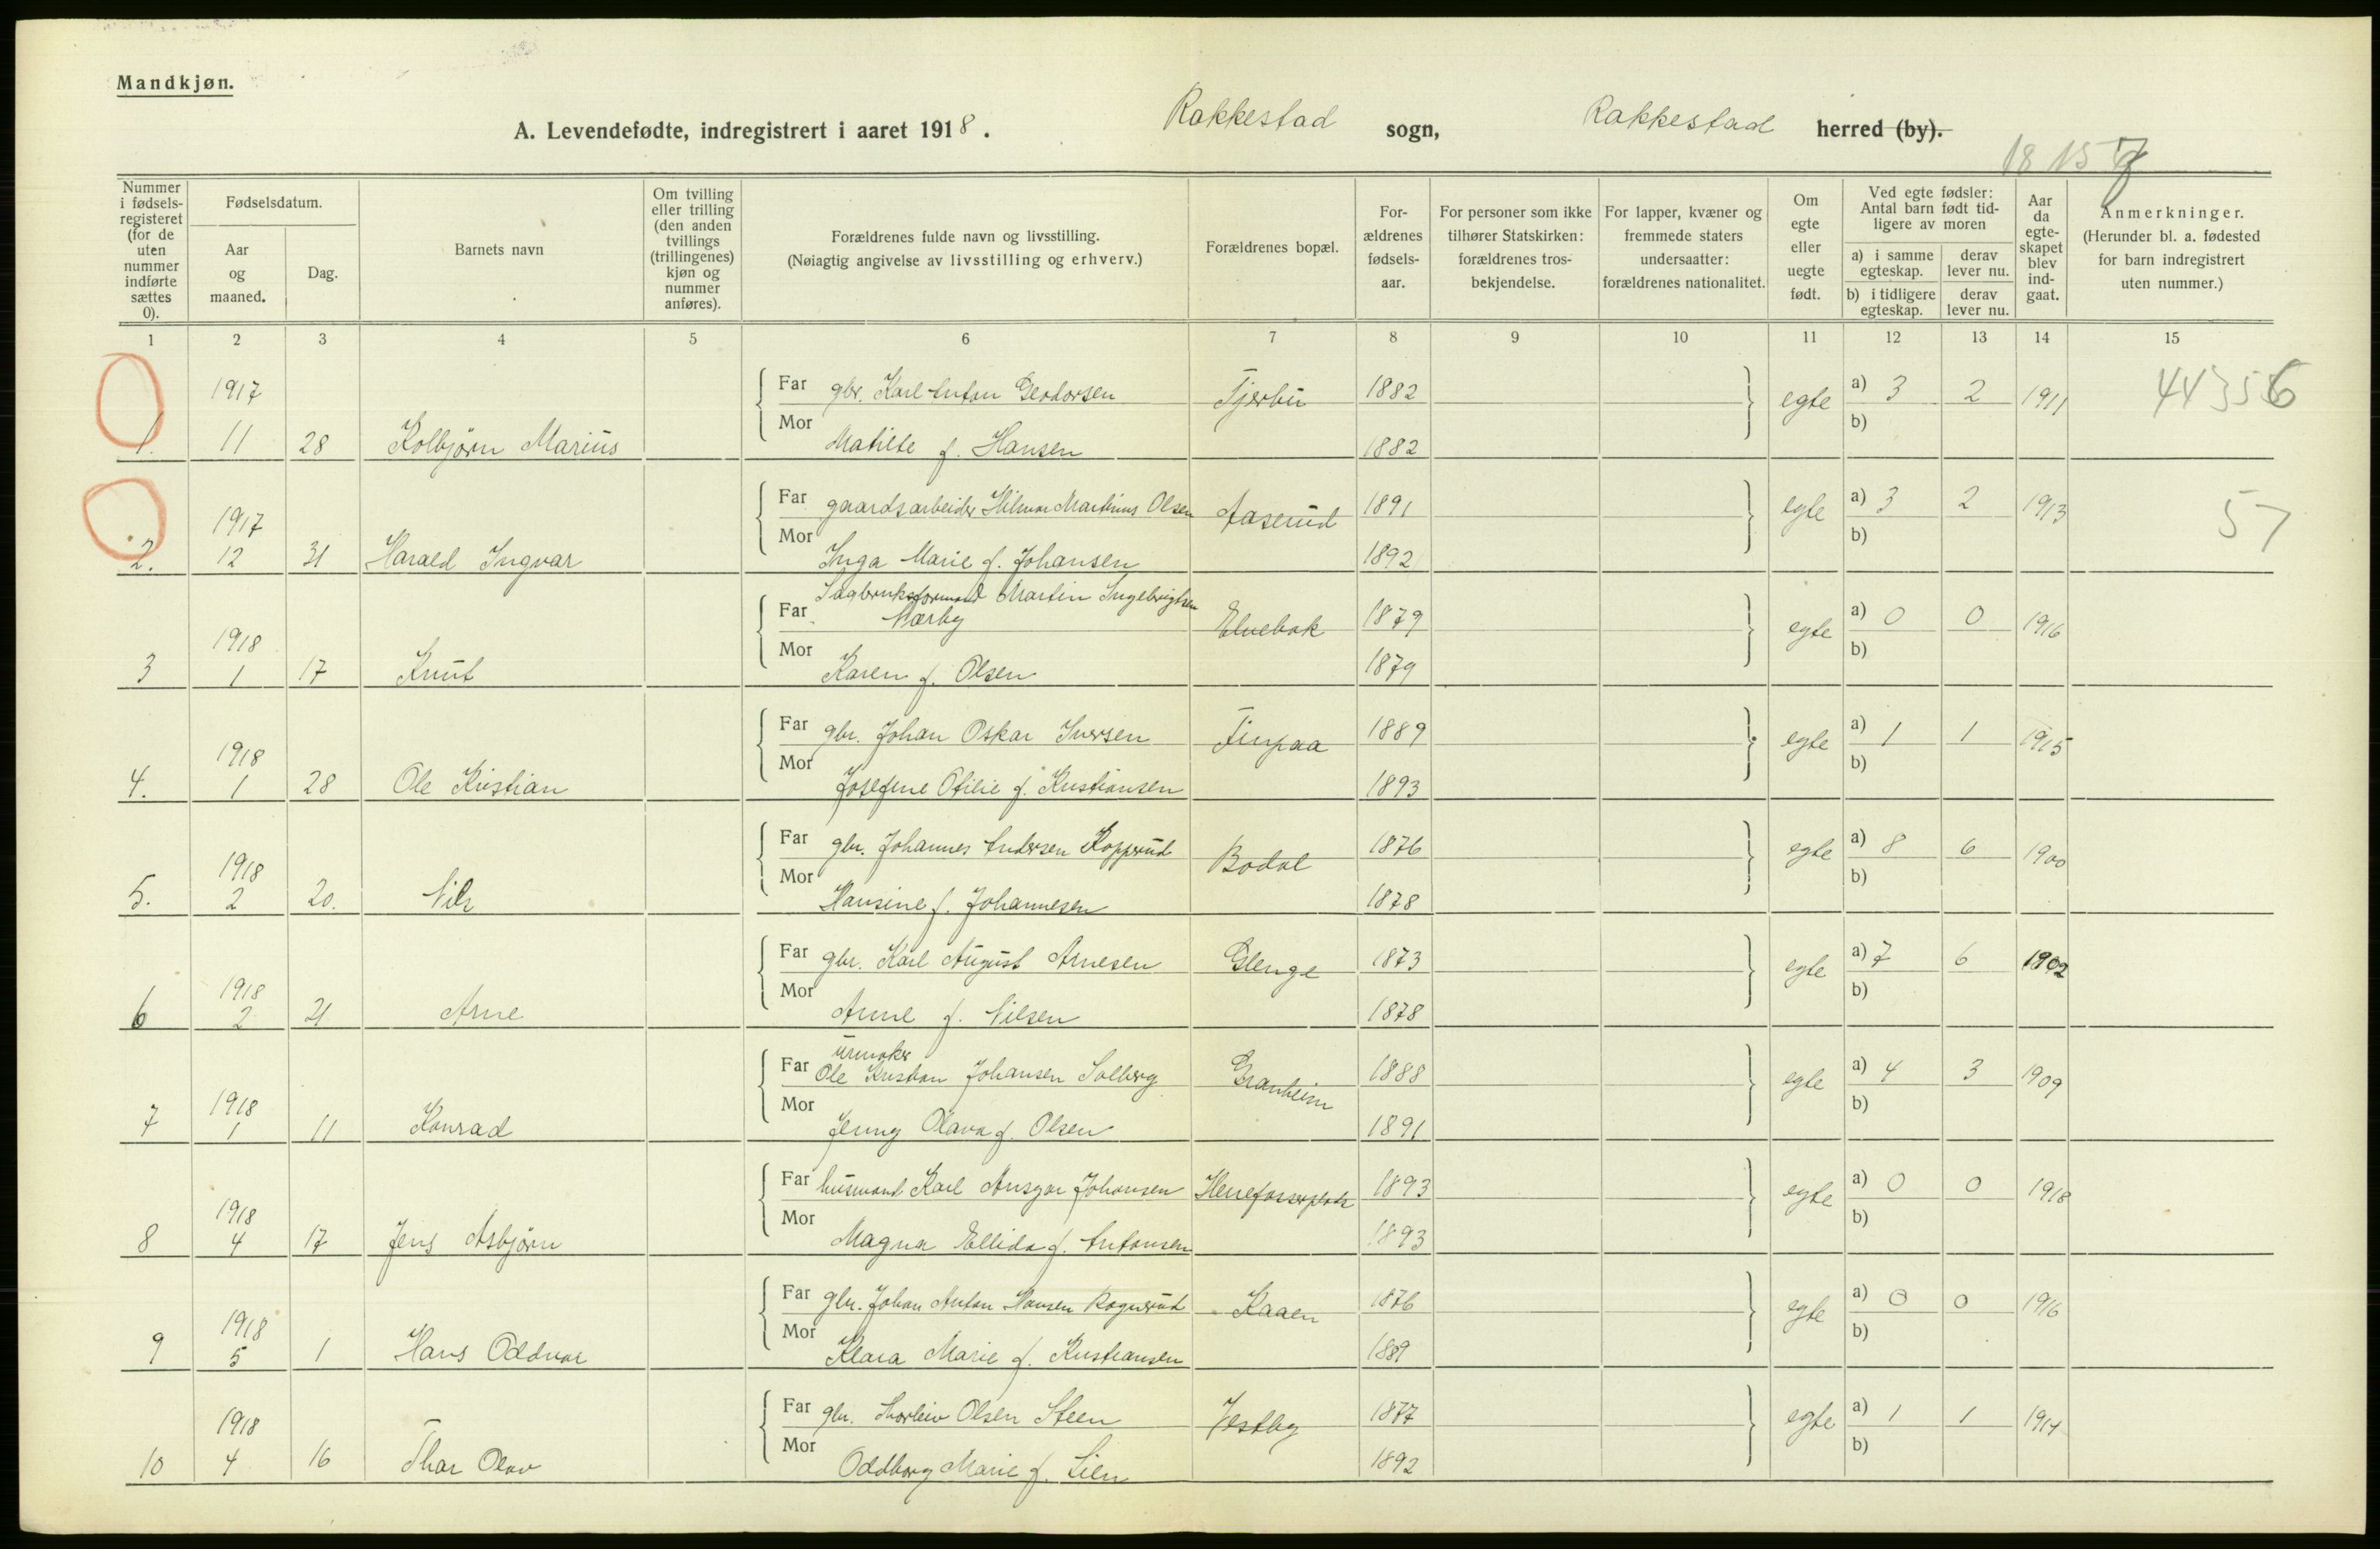 Mandkjøn.
A. Levendefødte, indregistrert i aaret 1918. Rakkestad sogn, Rakkestad herred (by).
Nummer i fødsels-registeret (for de uten nummer indførte sættes 0).
Fødselsdatum.
Aar og maaned.
Dag.
Barnets navn
Om tvilling eller trilling (den anden tvillings (trillingenes) kjøn og nummer anføres).
Forældrenes fulde navn og livsstilling.
(Nøiagtig angivelse av livsstilling og erhverv.)
Forældrenes bopæl.
For-ældrenes fødsels-aar.
For personer som ikke tilhører Statskirken: forældrenes tros-bekjendelse.
For lapper, kvæner og fremmede staters undersaatter: forældrenes nationalitet.
Om egte eller uegte født.
Ved egte fødsler: Antal barn født tid-ligere av moren
a) i samme egteskap.
derav lever nu.
b) i tidligere egteskap.
derav lever nu.
Aar da egte-skapet blev ind-gaat.
Anmerkninger.
(Herunder bl. a. fødested for barn indregistrert uten nummer.)
1 2 3 4 5 6 7 8 9 10 11 12 13 14 15
1917 Far gbr. Karl Anton Geodorsen Tjerbu 1882 egte a) 3 2 1911 44356
1. 11 28 Kolbjørn Marius Mor Matilde f. Hansen 1882 b)
1917 Far gaardsarbeider Hilmar Martinus Olsen Aaserud 1891 egte a) 3 2 1913 57
2. 12 31 Harald Ingvar Mor Inga Marie f. Johansen 1892 b)
Sagbruksformand Martin Ingebrigtsen
1918 Far Nærby Elvebak 1879 egte a) 0 0 1916
3 1 17 Knut Mor Karen f. Olsen 1879 b)
1918 Far gbr. Johan Oskar Iversen 1889 egte a) 1 1 1915
4. 1 28 Ole Kristian Mor Josefine Otilie f. Kristiansen 1893 b)
1918 Far gbr. Johannes Andersen Kopperud Bodal 1876 egte a) 8 6 1900
5. 2 20. Nils Mor Hansine f. Johannesen 1878 b)
1918 Far gbr. Karl August Arnesen Glenge 1873 egte a) 7 6 1902
6 2 21 Arne Mor Anne f. Nilsen 1878 b)
urmaker
1918 Far Ole Kristian Johansen Solberg Granheim 1888 egte a) 4 3 1909
7 1 11 Konrad Mor Jenny Olava f. Olsen 1891 b)
1918 Far husmand Karl Ansgar Johansen 1893 egte a) 0 0 1918
8 4 17 Jens Asbjørn Mor Magna Ellida f. Antonsen 1893 b)
1918 Far gbr. Johan Anton Hansen Rognerud Kaaen 1876 egte a) 0 0 1916
9 5 1 Hans Oddvar Mor Klara Marie f. Kristiansen 1889 b)
1918 Far gbr. Thorleiv Olsen Steen Vestby 1877 egte a) 1 1 1914
10 4 16 Thor Olav Mor Oddborg Marie f. Lien 1892 b)